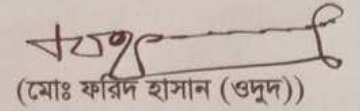 (মোঃ ফরিদ হাসান (ওদুদ))